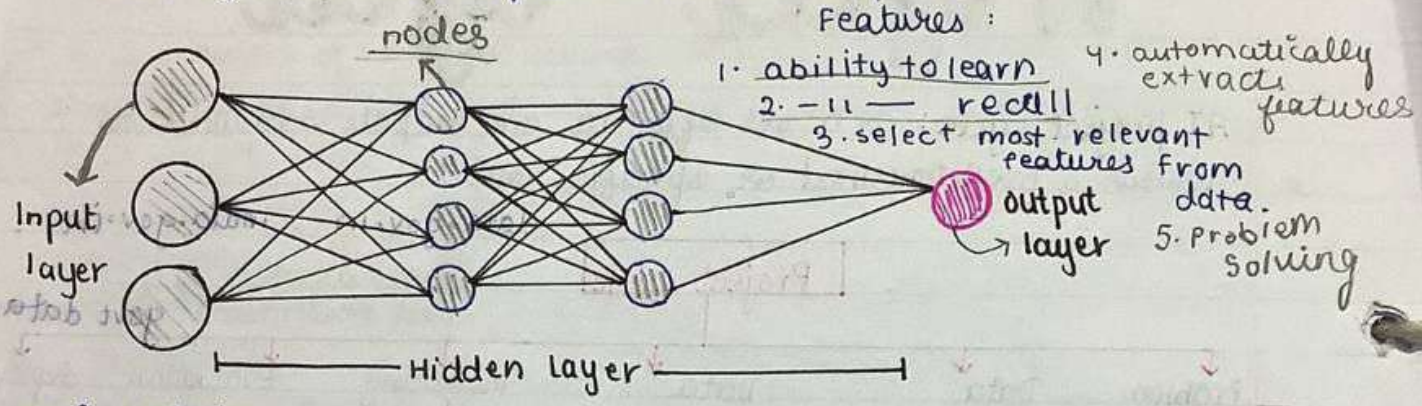 nodes
Features :
1. ability to learn
2. -11- recall
3. select most relevant
features from
data.
4. automatically
extracts
features
5. Problem
solving
Input
layer
output
layer
Hidden layer